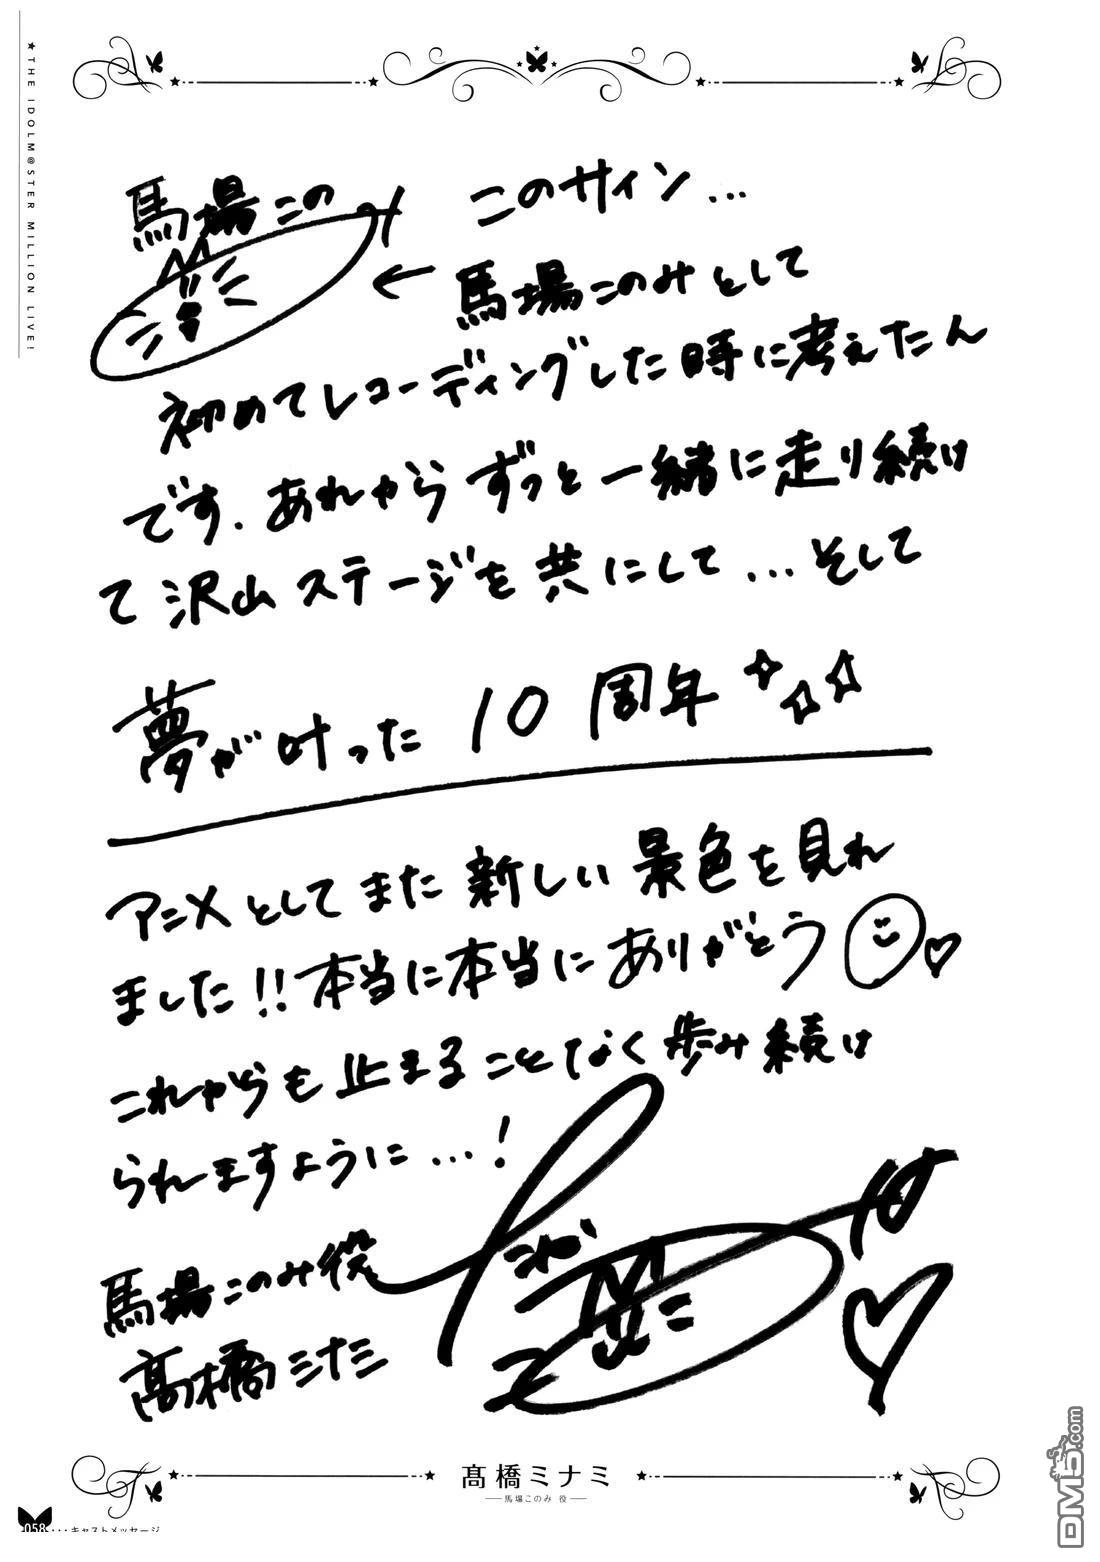 ★THE IDOLM@STER MILLION LIVE!
馬場このみ
このサイン…
←馬場このみとして
初めてレコーディングした時に考えたん
です．あれからずっと一緒に走り続け
て沢山ステージを共にして…そして
夢が叶った10周年
アニメとしてまた新しい景色を見れ
ました!!本当に本当にありがとう
これからも止まることなく歩み続け
られますように…!
馬場このみ役
髙橋ミナミ
髙橋ミナミ
馬場このみ 役
058・・・キャストメッセージ
DM5.com